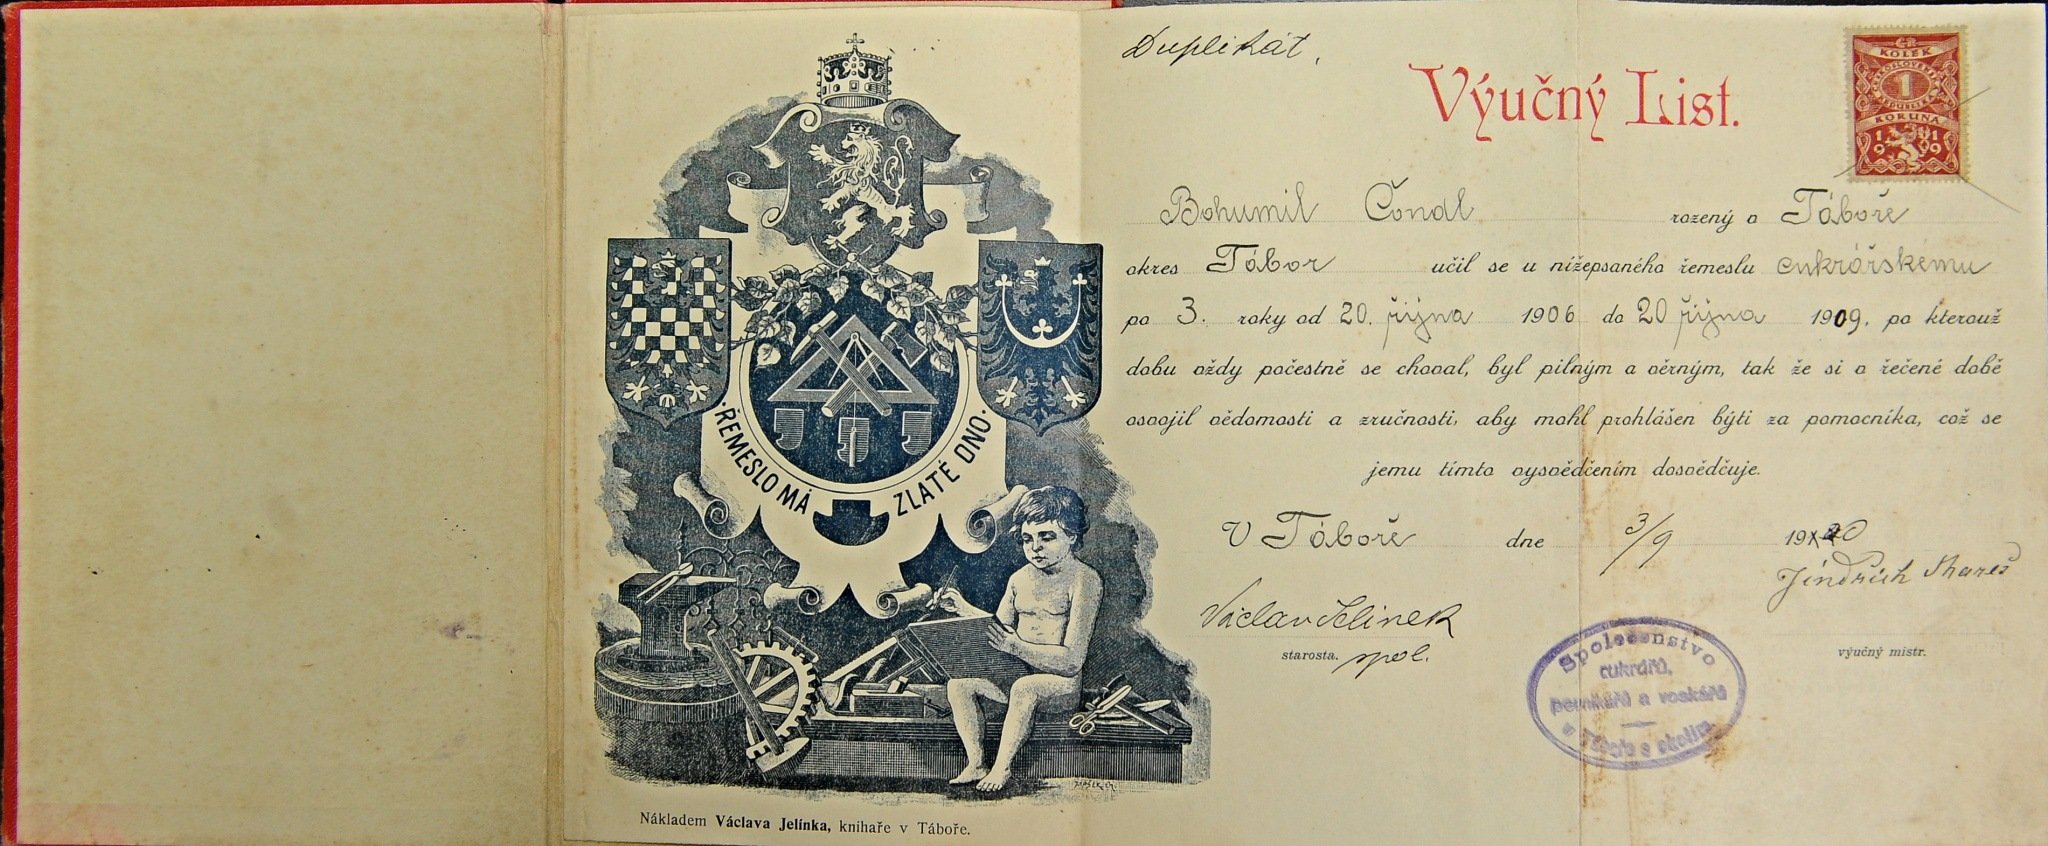 ŘEMESLO MÁ ZLATÉ DNO
Nákladem Václava Jelínka, knihaře v Táboře.
Duplikát.
Výučný List.
KOLEK
1
KORUNA
1919
Bohumil Čondl rozený v Táboře
okres Tábor učil se u nížepsaného řemeslu cukrářskému
po 3. roky od 20. října 1906 do 20 října 1909, po kterouž
dobu vždy počestně se choval, byl pilným a věrným, tak že si v řečené době
osvojil vědomosti a zručnosti, aby mohl prohlášen býti za pomocníka, což se
jemu tímto vysvědčením dosvědčuje.
V Táboře dne 3/9 1920
Jindřich
Václav Jelínek
starosta. spol.
výučný mistr.
Společenstvo
cukrářů,
perníkářů a voskářů
v Táboře s okolím